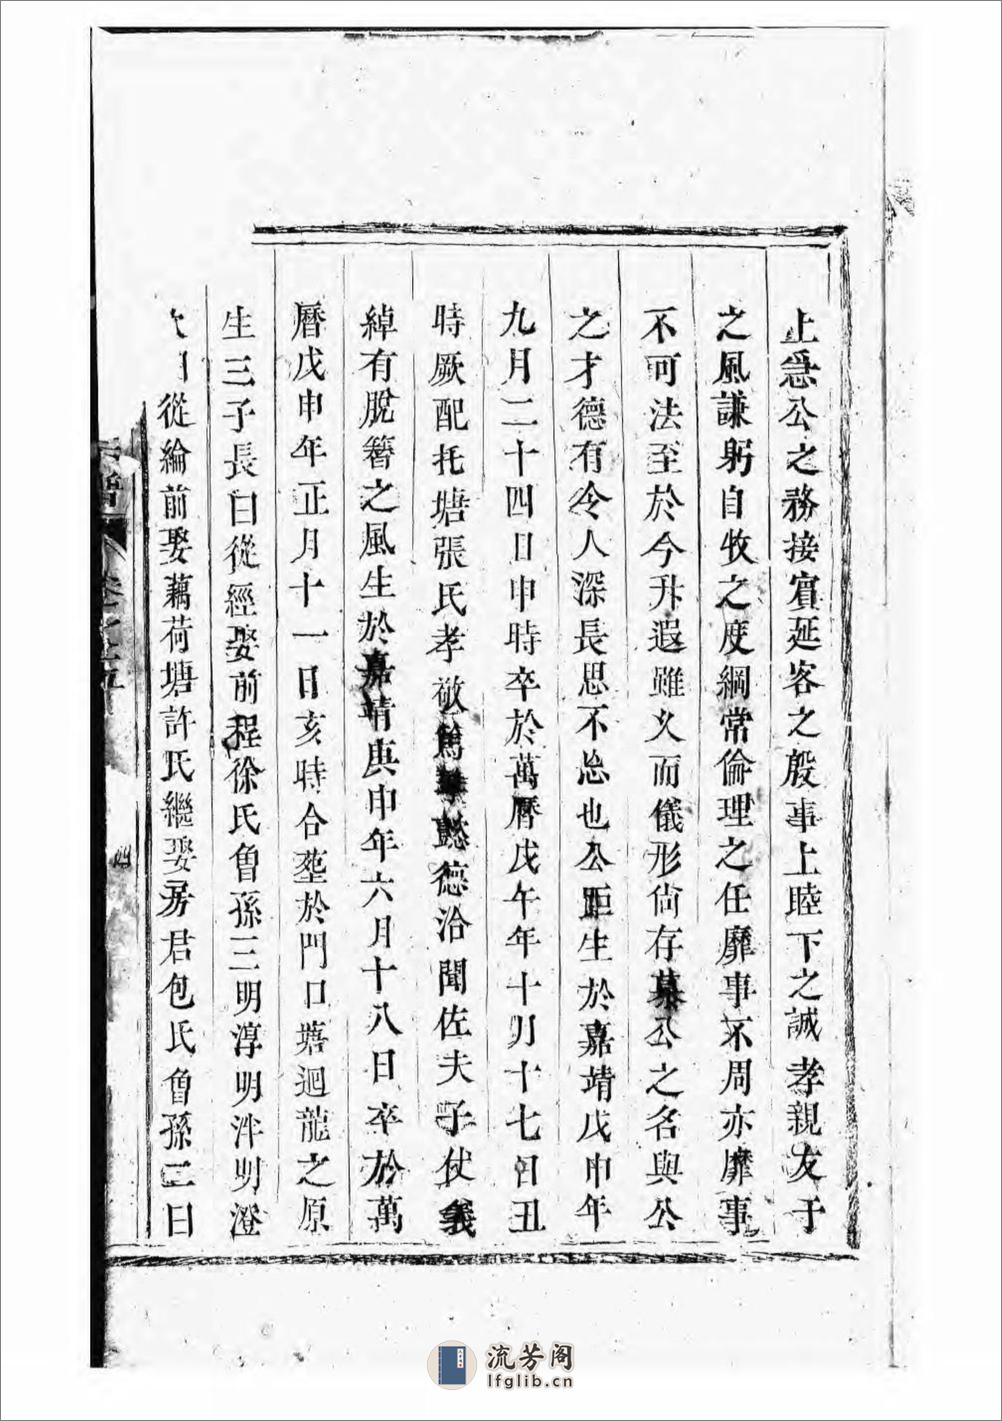 上急公之務接賓延客之殷事上睦下之誠孝親友于
之風謙躬自牧之度綱常倫理之任靡事不周亦靡事
不可法至於今升遐雖乆而儀形尙存慕公之名與公
之才德有令人深長思不忘也公距生於嘉靖戊申年
九月二十四日申時卒於萬曆戊午年十月十七日丑
時厥配托塘張氏孝敬篤懿德洽聞佐夫子仗義
綽有脫簪之風生於嘉靖庚申年六月十八日卒於萬
曆戊申年正月十一日亥時合塟於門口塘迴龍之原
生三子長曰從經娶前程徐氏曾孫三明淳明泮明澄
次曰從綸前娶藕荷塘許氏繼娶房君包氏曾孫二曰
譜
四
流芳阁
lfglib.cn